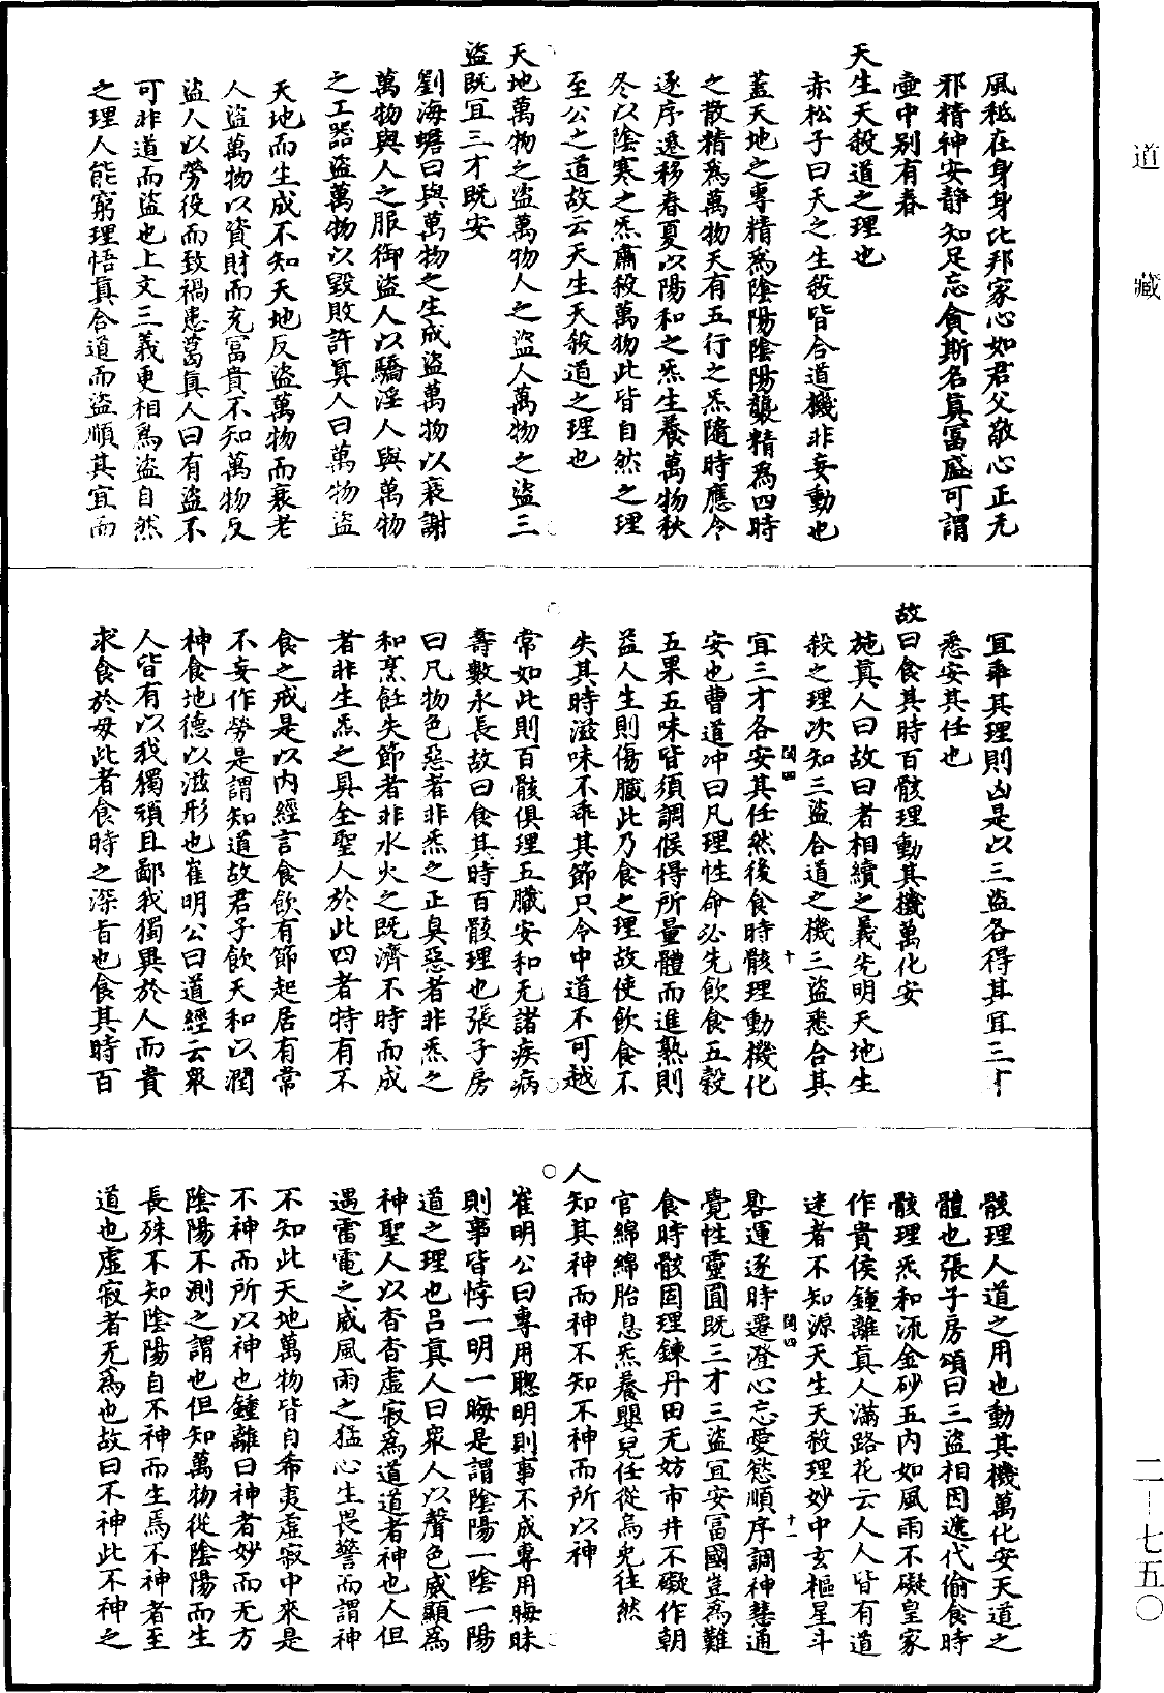 道藏
風秪在身身比邦家心如君父敬心正无
邪精神安靜知足忘貪斯名真富盛可謂
壺中别有春
天生天殺道之理也
赤松子曰天之生殺皆合道機非妄動也
蓋天地之專精為陰陽陰陽襲精為四時
之散精為萬物天有五行之炁隨時應令
逐序遷移春夏以陽和之炁生養萬物秋
冬以陰寒之炁肅殺萬物此皆自然之理
至公之道故云天生天殺道之理也
天地萬物之盜萬物人之盜人萬物之盜三
盜既宜三才既安
劉海蟾曰與萬物之生成盜萬物以衰謝
萬物與人之服御盜人以驕淫人與萬物
之工器盜萬物以毀敗許真人曰萬物盜
天地而生成不知天地反盜萬物而衰老
人盜萬物以資財而充富貴不知萬物反
盜人以勞役而致禍患葛真人曰有盜不
可非道而盜也上文三義更相為盜自然
之理人能窮理悟真合道而盜順其宜而
宜乖其理則凶是以三盜各得其宜三才
悉安其任也
故曰食其時百骸理動其機萬化安
施真人曰故曰者相續之義先明天地生
殺之理次知三盜合道之機三盜悉合其
閏四 十
宜三才各安其任然後食時骸理動機化
安也曹道冲曰凡理性命必先飲食五穀
五果五味皆須調候得所量體而進熟則
益人生則傷臟此乃食之理故使飲食不
失其時滋味不乖其節只令中道不可越
常如此則百骸俱理五臟安和无諸疾病
壽數永長故曰食其時百骸理也張子房
曰凡物色惡者非炁之正臭惡者非炁之
和烹飪失節者非水火之既濟不時而成
者非生炁之具全聖人於此四者特有不
食之戒是以內經言食飲有節起居有常
不妄作勞是謂知道故君子飲天和以潤
神食地德以滋形也崔明公曰道經云眾
人皆有以我獨頑且鄙我獨異於人而貴
求食於母此者食時之深旨也食其時百
骸理人道之用也動其機萬化安天道之
體也張子房頌曰三盜相因遞代偷食時
骸理炁和流金砂五內如風雨不礙皇家
作貴侯鍾離真人滿路花云人人皆有道
迷者不知源天生天殺理妙中玄樞星斗
閏四 十一
晷運逐時遷澄心忘愛慾順序調神慧通
覺性靈圓既三才三盜宜安富國豈為難
食時骸固理鍊丹田无妨市井不礙作朝
官綿綿胎息炁養嬰兒任從烏兔往然
人知其神而神不知不神而所以神
崔明公曰專用聰明則事不成專用晦昧
則事皆悖一明一晦是謂陰陽一陰一陽
道之理也呂真人曰眾人以聲色威顯為
神聖人以杳杳虛寂為道道者神也人但
遇雷電之威風雨之猛心生畏警而謂神
不知此天地萬物皆自希夷虛寂中來是
不神而所以神也鍾離曰神者妙而无方
陰陽不測之謂也但知萬物從陰陽而生
長殊不知陰陽自不神而生焉不神者至
道也虛寂者无為也故曰不神此不神之
二一七五〇